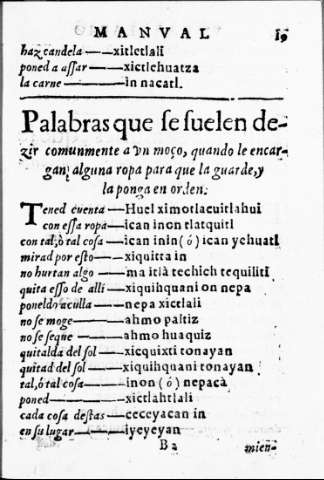 MANVAL 19
haz candela — xitletlali
poned a assar — xictlehuatza
la carne — in nacatl.
Palabras que se suelen de-
zir comunmente a vn moço, quando le encar-
gan alguna ropa para que la guarde, y
la ponga en orden.
Tened cuenta — Huel ximotlacuitlahui
con essa ropa — ican inon tlatquitl
con tal, ò tal cosa — ican inin (ó) ican yehuatl
mirad por esto — xiquitta in
no hurtan algo — ma itlà techich tequiliti
quita esso de alli — xiquihquani on nepa
poneldo aculla — nepa xictlali
no se moge — ahmo paltiz
no se seque — ahmo huaquiz
quitalda del sol — xicquixti tonayan
quitad del sol — xiquihquani tonayan
tal, ó tal cosa — inon (ó) nepacà
poned — xictlahtlali
cada cosa destas — ceceyacan in
en su lugar — iyeyeyan
B2 mien-